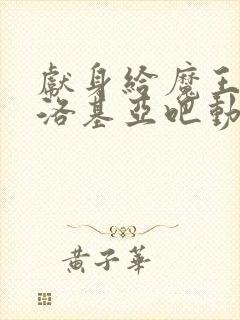 獻身給魔王
洛基亞吧動
黃子華